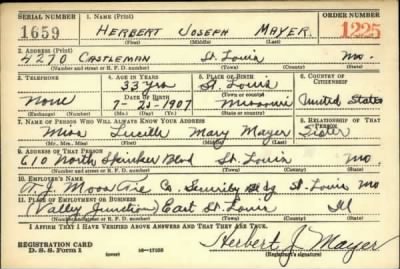 SERIAL NUMBER 1. NAME (Print) ORDER NUMBER
1659 HERBERT JOSEPH MAYER 1225
(First) (Middle) (Last)
2. ADDRESS (Print)
4270 CASTLEMAN St. Louis Mo.
(Number and street or R. F. D. number) (Town) (County) (State)
3. TELEPHONE 4. AGE IN YEARS 5. PLACE OF BIRTH 6. COUNTRY OF CITIZENSHIP
33 yrs St. Louis
DATE OF BIRTH (Town or county)
None 7- 1907 Missouri United States
(Exchange) (Number) (Mo.) (Day) (Yr.) (State or country)
7. NAME OF PERSON WHO WILL ALWAYS KNOW YOUR ADDRESS 8. RELATIONSHIP OF THAT PERSON
Miss Lucille Mary Mayer Sister
(Mr., Mrs., Miss) (First) (Middle) (Last)
9. ADDRESS OF THAT PERSON
610 North Skinker Blvd St. Louis Mo
(Number and street or R. F. D. number) (Town) (County) (State)
10. EMPLOYER'S NAME
J. Moss Tie Co. Security Bldg St. Louis Mo
11. PLACE OF EMPLOYMENT OR BUSINESS
(Valley Junction) East St. Louis Ill
(Number and street or R. F. D. number) (Town) (County) (State)
I AFFIRM THAT I HAVE VERIFIED ABOVE ANSWERS AND THAT THEY ARE TRUE.
REGISTRATION CARD Herbert J. Mayer
D. S. S. Form 1 (over) (Registrant's signature)